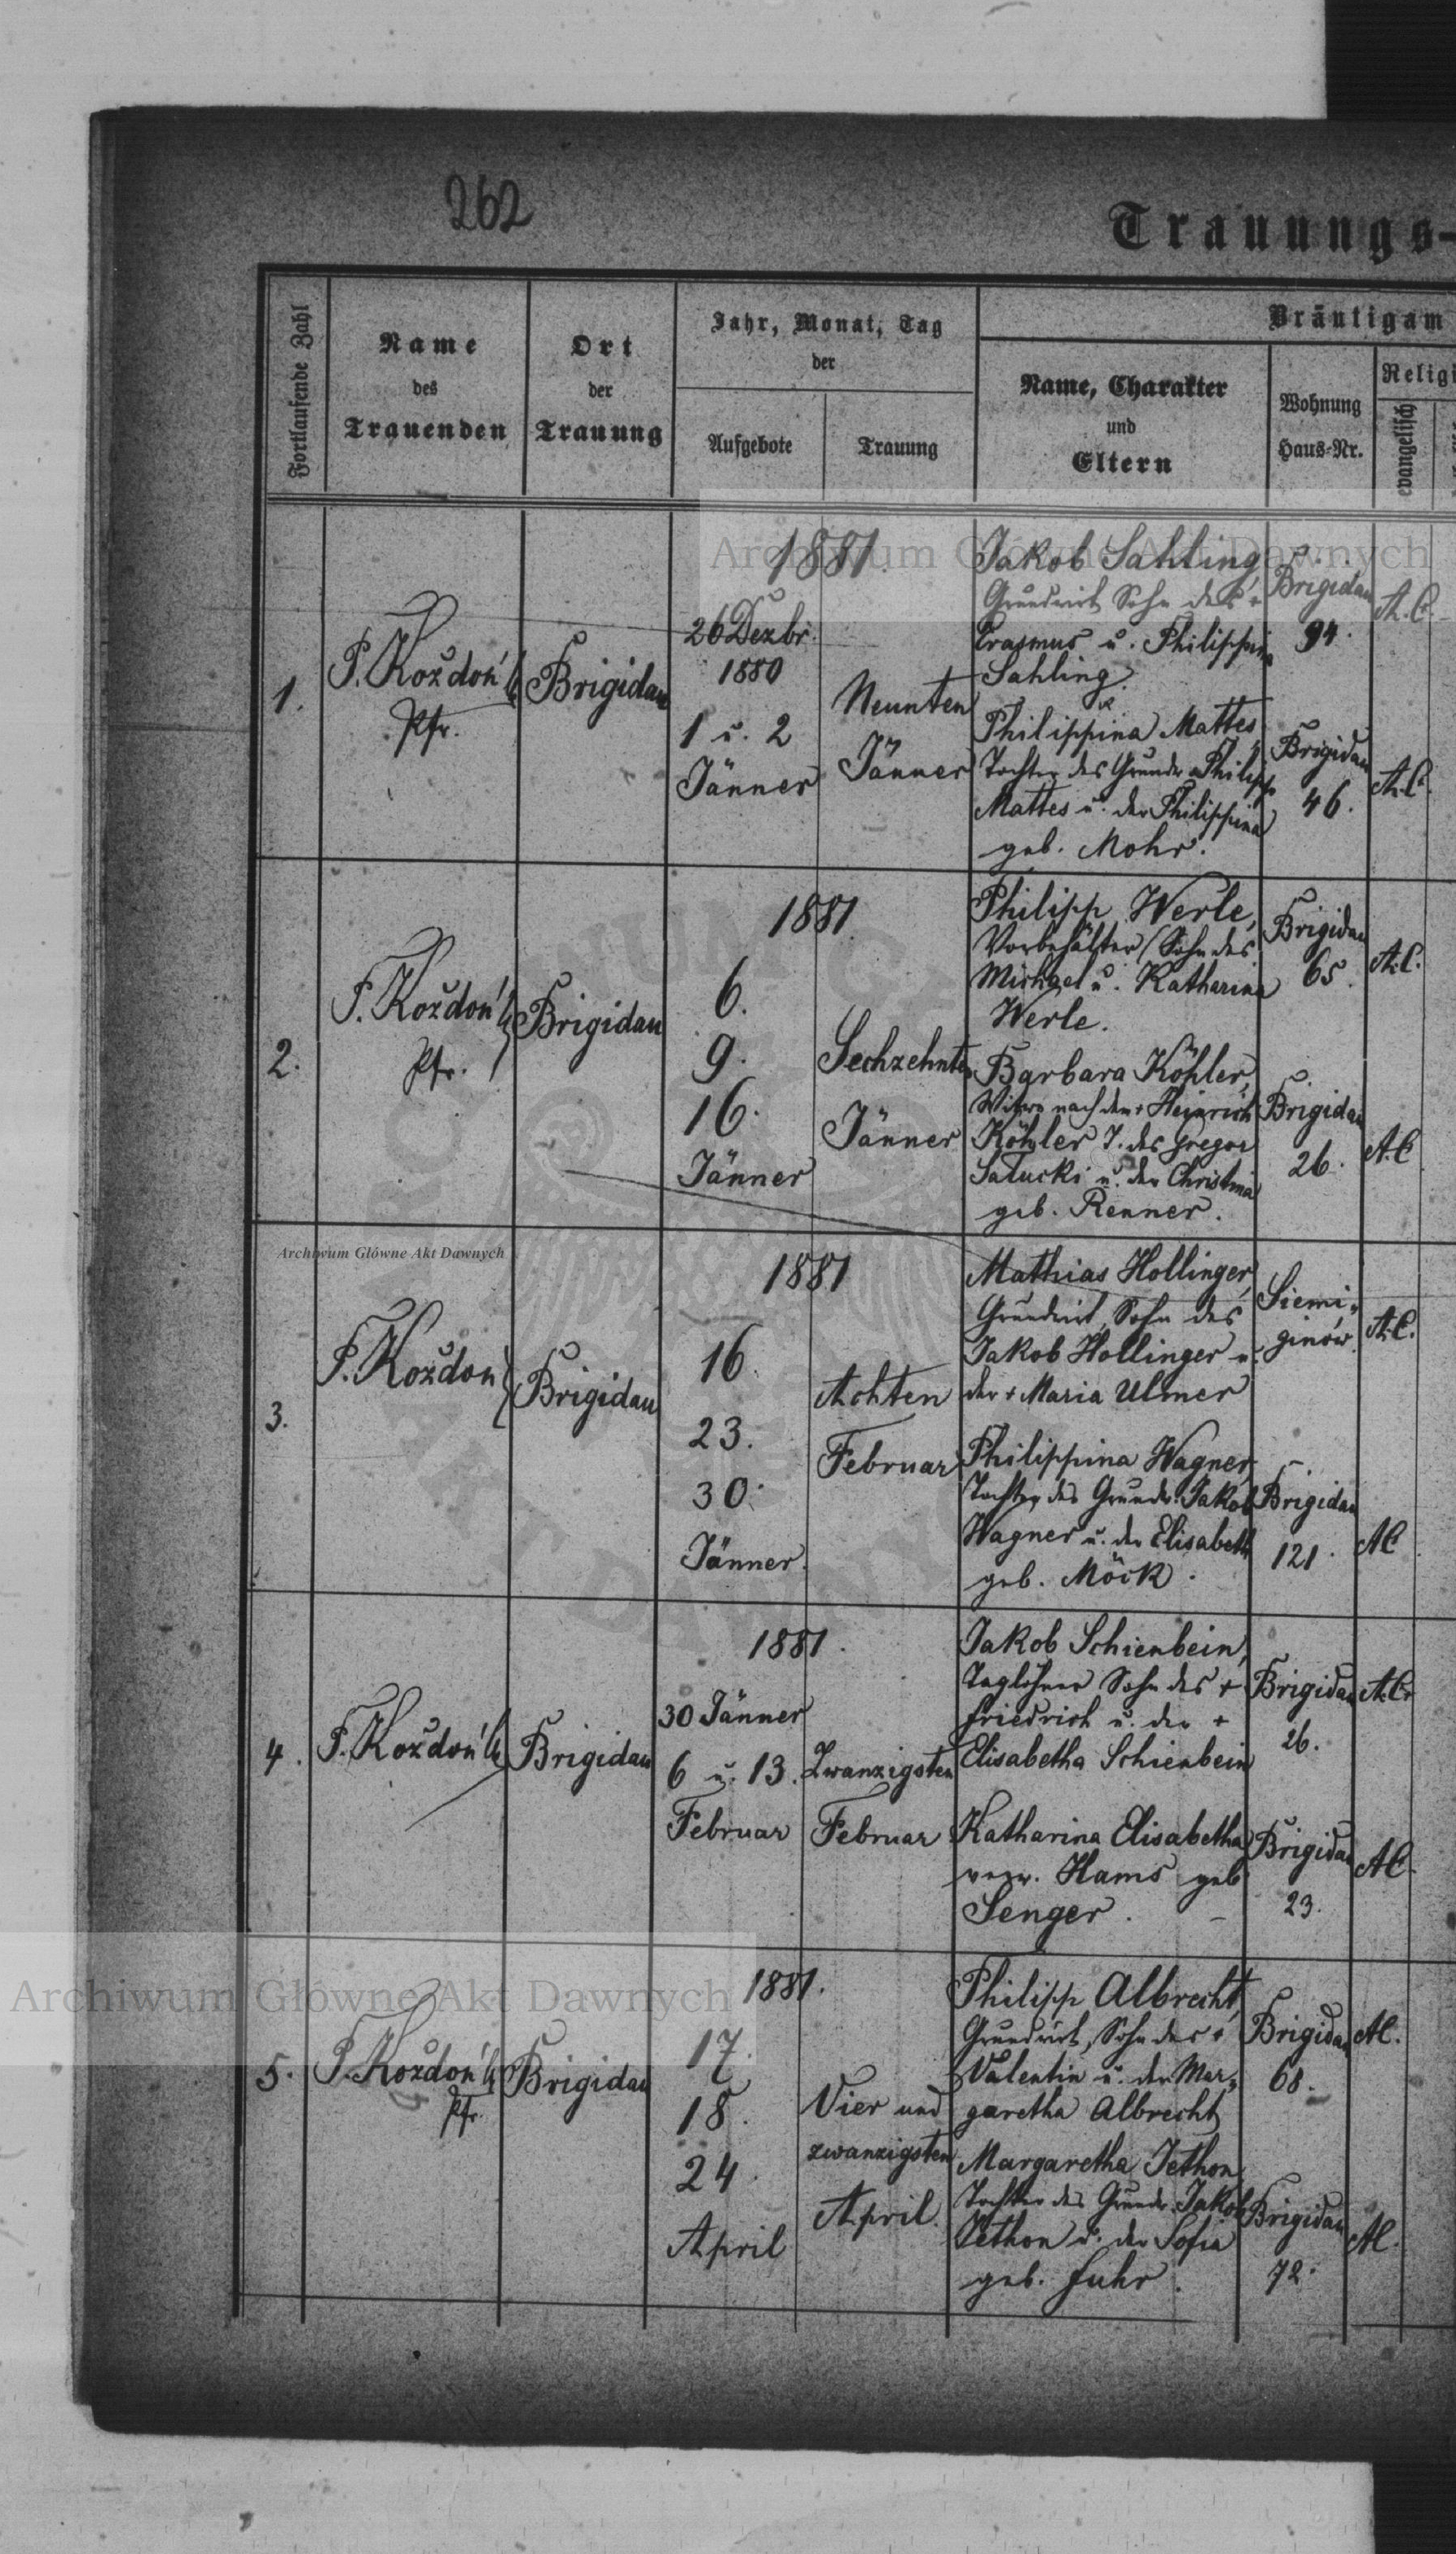 262
Trauungs-
Fortlaufende Zahl
Name
des
Trauenden
Ort
der
Trauung
Jahr, Monat, Tag
der
Aufgebote
Trauung
Bräutigam
Name, Charakter
und
Eltern
Wohnung
Haus-Nr.
Religi
evangelisch
Archiwum Główne Akt Dawnych
1.
P. Kozdoń
Pfr.
Brigidau
1881.
26 Dezbr.
1880
1 u. 2
Jänner
Neunten
Jänner
Jakob Sahling,
Grundwirt Sohn des +
Erasmus u. Philippina
Sahling.
Philippina Mattes
Tochter des Grundw. Philipp
Mattes u. der Philippina
geb. Mohr.
Brigidau
94.
A. C.
Brigidau
46.
A. C.
2.
P. Kozdoń
Pfr.
Brigidau
1881
6.
9.
16.
Jänner
Sechzehnten
Jänner
Philipp Werle,
Vorbehälter, Sohn des
Michael u. Katharina
Werle.
Barbara Köhler,
Witwe nach dem + Heinrich
Köhler T. des Gregor
Satucki u. der Christina
geb. Renner.
Brigidau
65.
A. C.
Brigidau
26.
A. C
Archiwum Główne Akt Dawnych
3.
P. Kozdoń
Brigidau
1881
16.
23.
30.
Jänner.
Achten
Februar
Mathias Hollinger,
Grundwirt, Sohn des
Jakob Hollinger u.
der + Maria Ulmer
Philippina Wagner,
Tochter des Grundw. Jakob
Wagner u. der Elisabeth
geb. Möck.
Siemi-
ginów.
A. C.
Brigidau
121.
AC
4.
P. Kozdoń
Brigidau
1881.
30 Jänner
6 u. 13.
Februar
Zwanzigsten
Februar
Jakob Schienbein,
Taglöhner Sohn des +
Friedrich u. der +
Elisabetha Schienbein
Katharina Elisabetha
verw. Hams geb.
Senger.
Brigidau
26.
A. C.
Brigidau
23.
AC
Archiwum Główne Akt Dawnych
5.
P. Kozdoń
Pfr.
Brigidau
1881.
17.
18.
24.
April
Vier und
zwanzigsten
April.
Philipp Albrecht,
Grundwirt, Sohn des +
Valentin u. der Mar-
garetha Albrecht
Margaretha Jethon,
Tochter des Grundw. Jakob
Jethon u. der Sofia
geb. Fuhr.
Brigidau
68.
AC.
Brigidau
72.
AC.